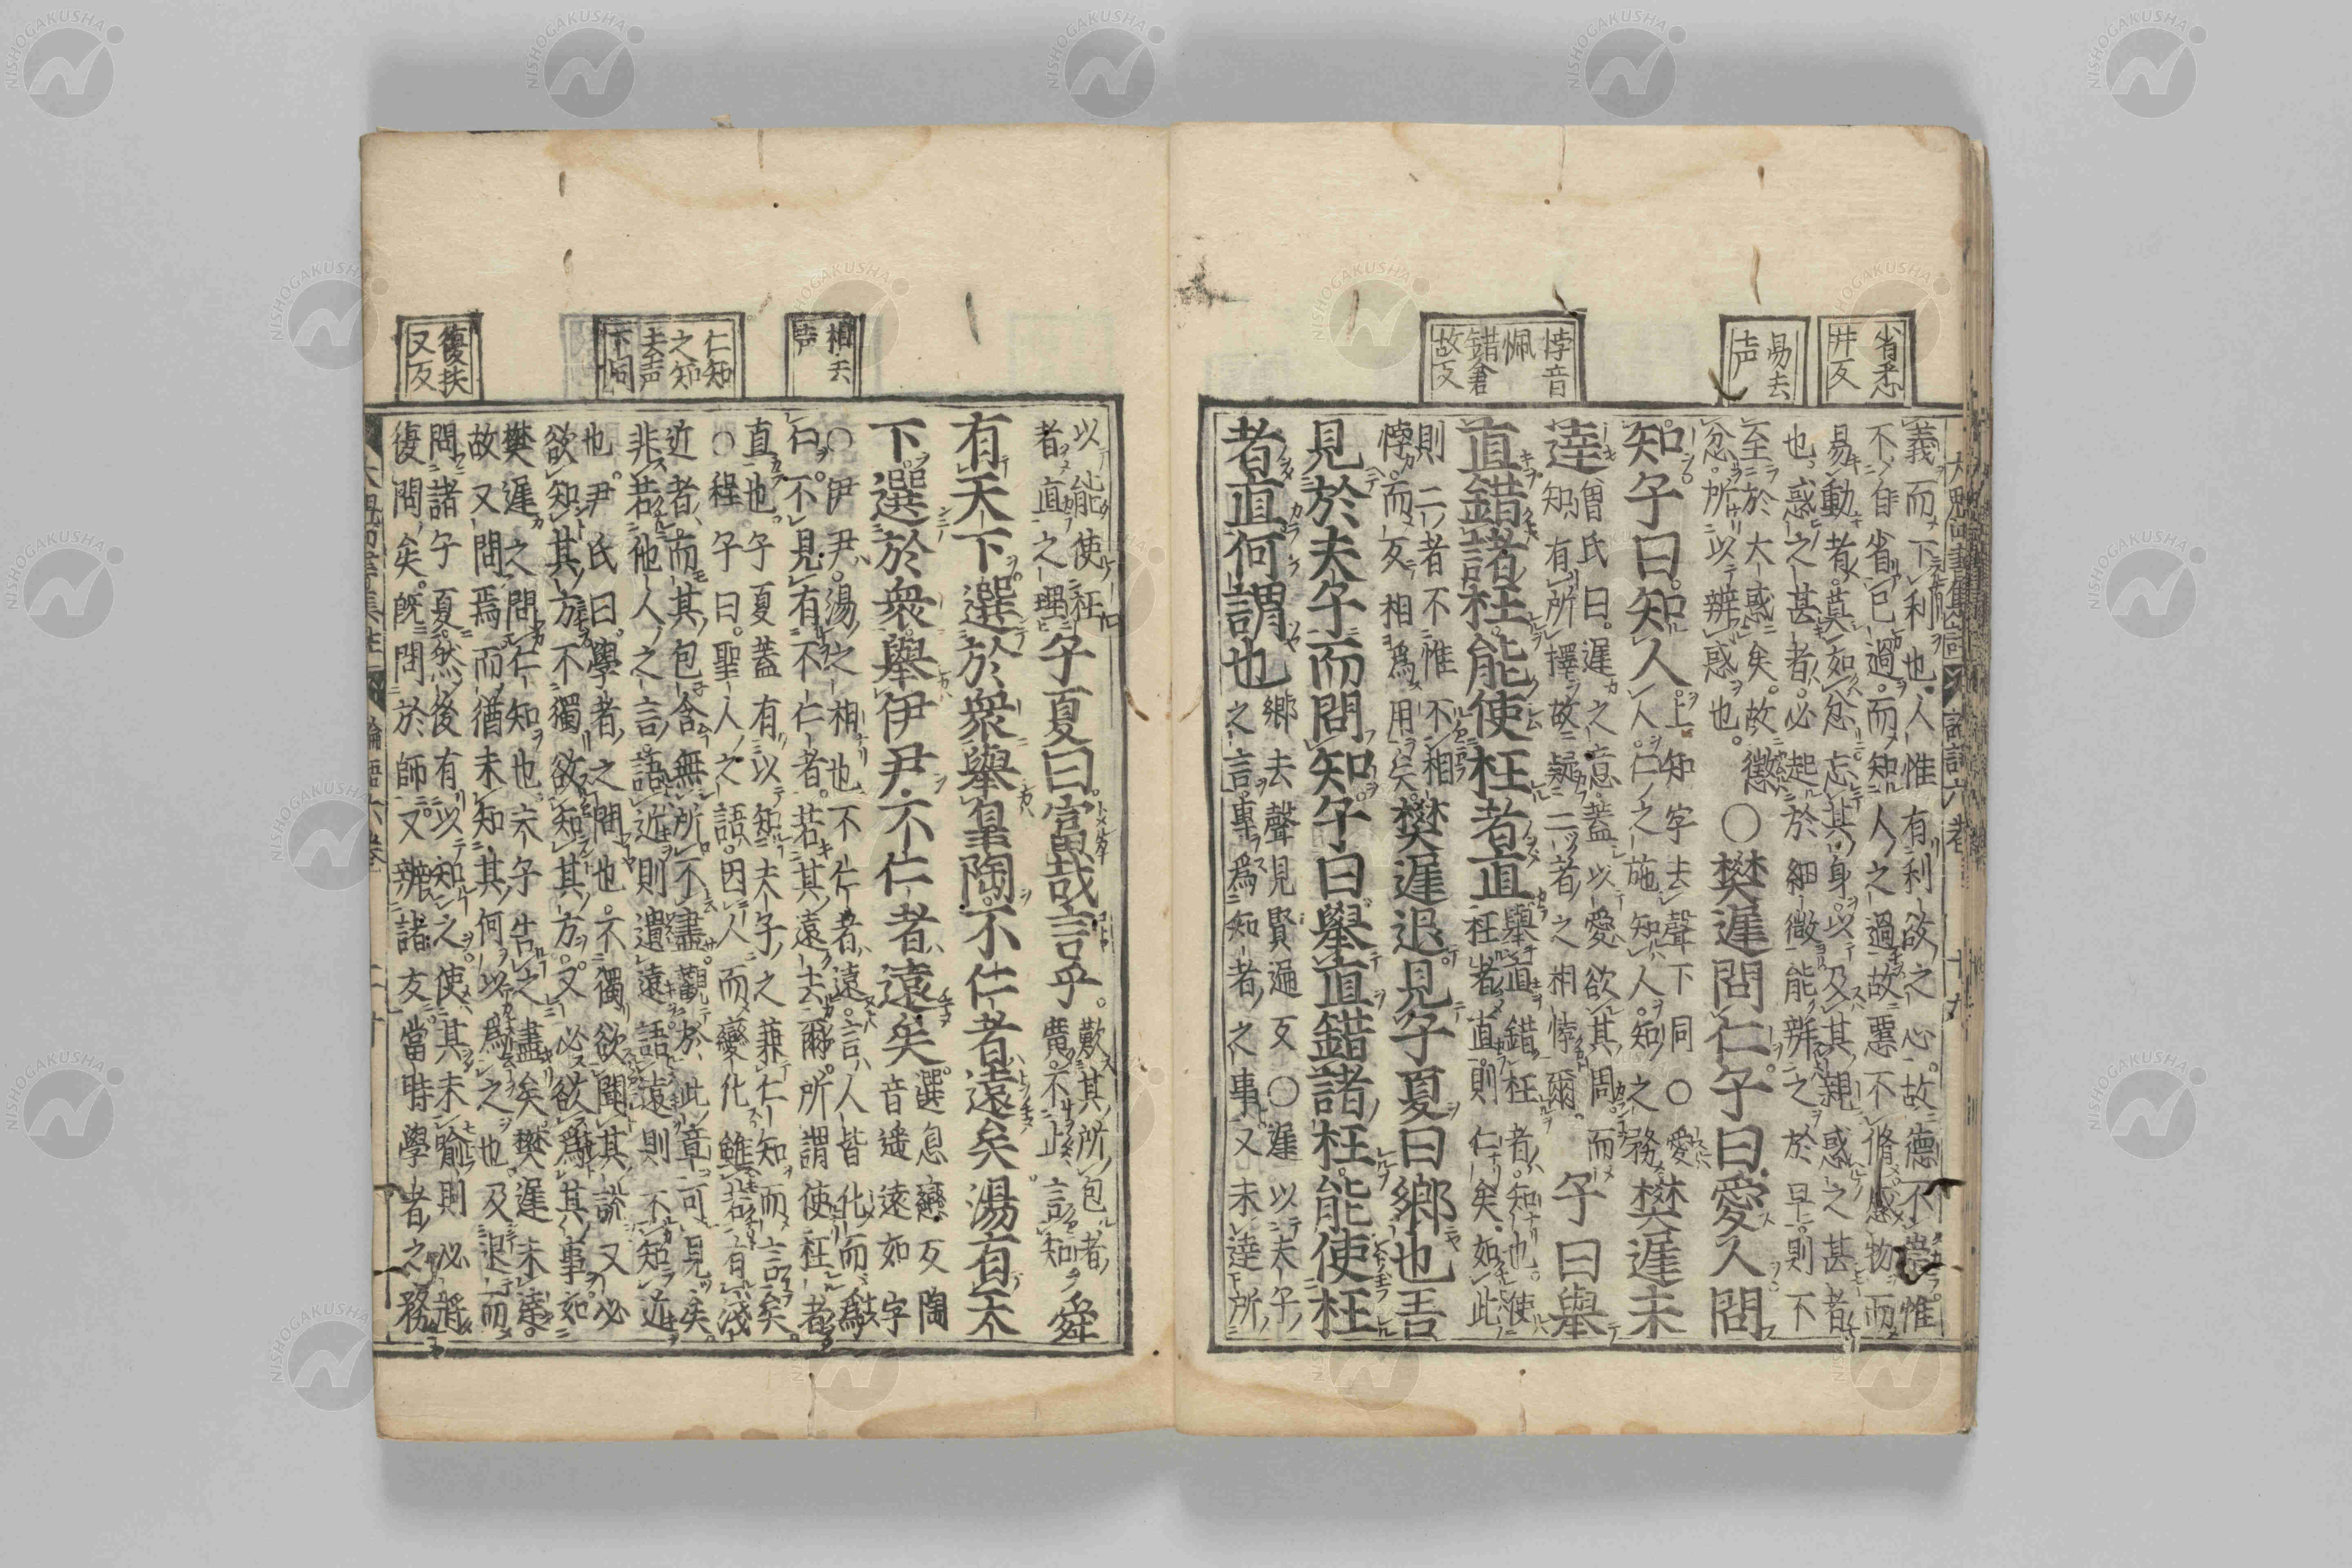 省悉
井反
易去
声
悖音
佩
錯倉
故反
義而下利也人惟有利欲之心故德不崇惟
不自省己過而知人之過故慝不脩感物而
易動者莫如忿忘其身以及其親惑之甚者
也惑之甚者必起於細微能辨之於早則不
至於大惑矣故懲
忿所以辨惑也
○樊遲問仁子曰愛人問
知子曰知人
上知字去聲下同○愛
人仁之施知人知之務
樊遲未
達
曽氏曰遲之意蓋以愛欲其周而
知有所擇故疑二者之相悖爾
子曰舉
直錯諸枉能使枉者直
舉直錯枉者知也使
枉者直則仁矣如此
則二者不惟不相
悖而反相爲用矣
樊遲退見子夏曰郷也吾
見於夫子而問知子曰舉直錯諸枉能使枉
者直何謂也
郷去聲見賢遍反○遲以夫子
之言專爲知者之事又未達所
相去
声
仁知
之知
去声
下同
復扶
又反
以能使枉
者直之理
子夏曰富哉言乎
歎其所包者
廣不止言知
舜
有天下選於衆舉皐陶不仁者遠矣湯有天
下選於衆舉伊尹不仁者遠矣
選息戀反陶
音遥遠如字
○伊尹湯之相也不仁者遠言人皆化而爲
仁不見有不仁者若其遠去爾所謂使枉者
直也子夏蓋有以知夫子之兼仁知而言矣
○程子曰聖人之語因人而變化雖若有淺
近者而其包含無所不盡觀於此章可見矣
非若他人之言語近則遺遠語遠則不知近
也尹氏曰學者之問也不獨欲聞其說又必
欲知其方不獨欲知其方又必欲爲其事如
樊遲之問仁知也夫子告之盡矣樊遲未達
故又問焉而猶未知其何以爲之也及退而
問諸子夏然後有以知之使其未喻則必將
復問矣既問於師又辨諸友當時學者之務